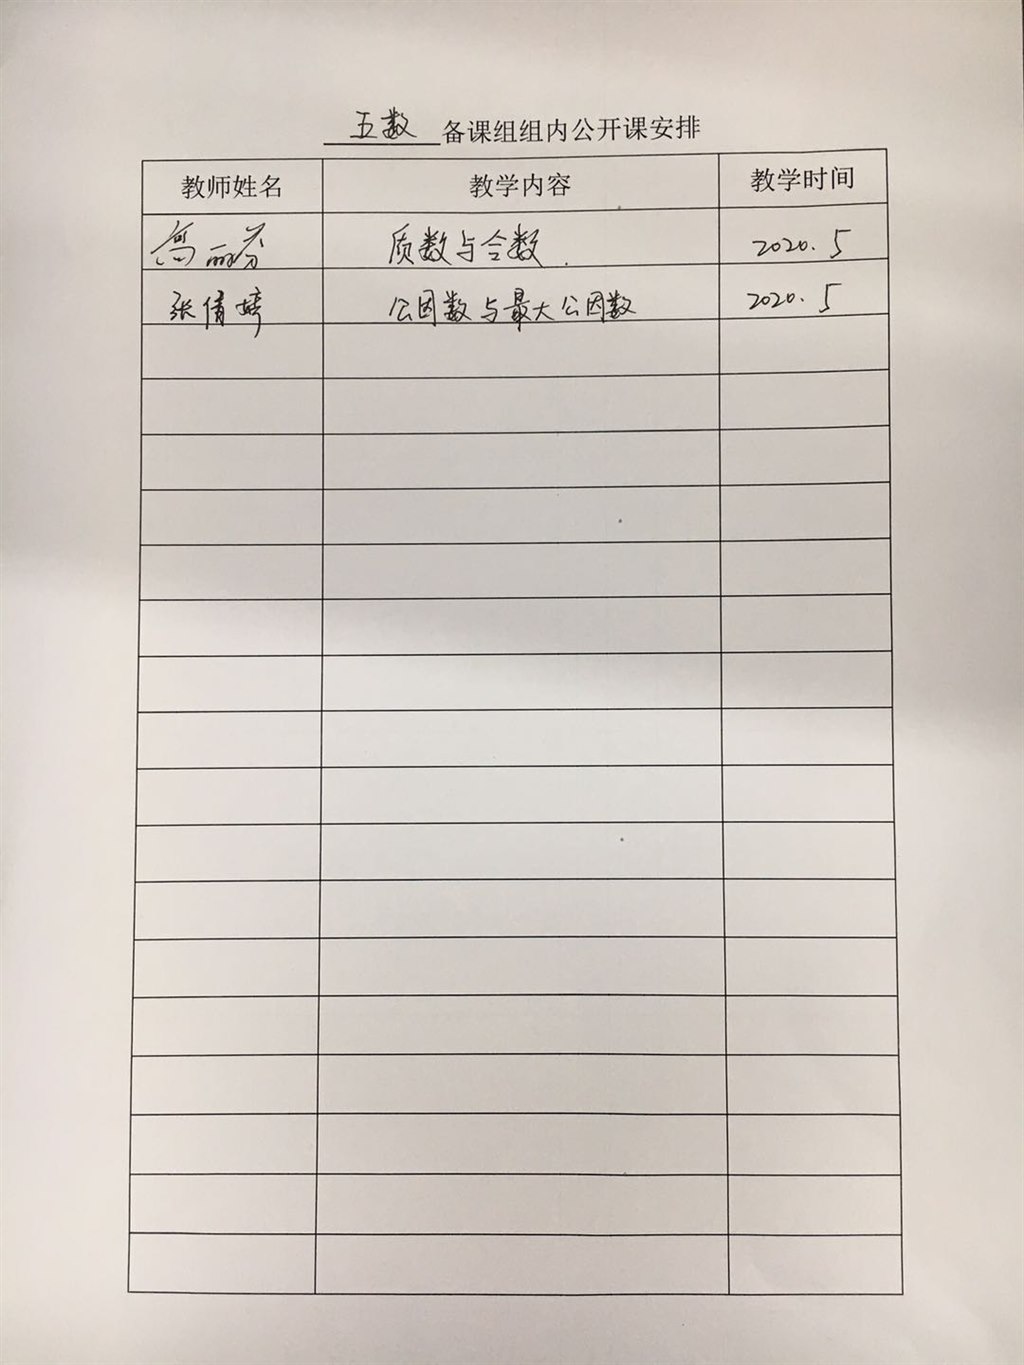 五数备课组组内公开课安排
教师姓名 教学内容 教学时间
高丽芬 质数与合数. 2020.5
张倩婷 公因数与最大公因数 2020.5